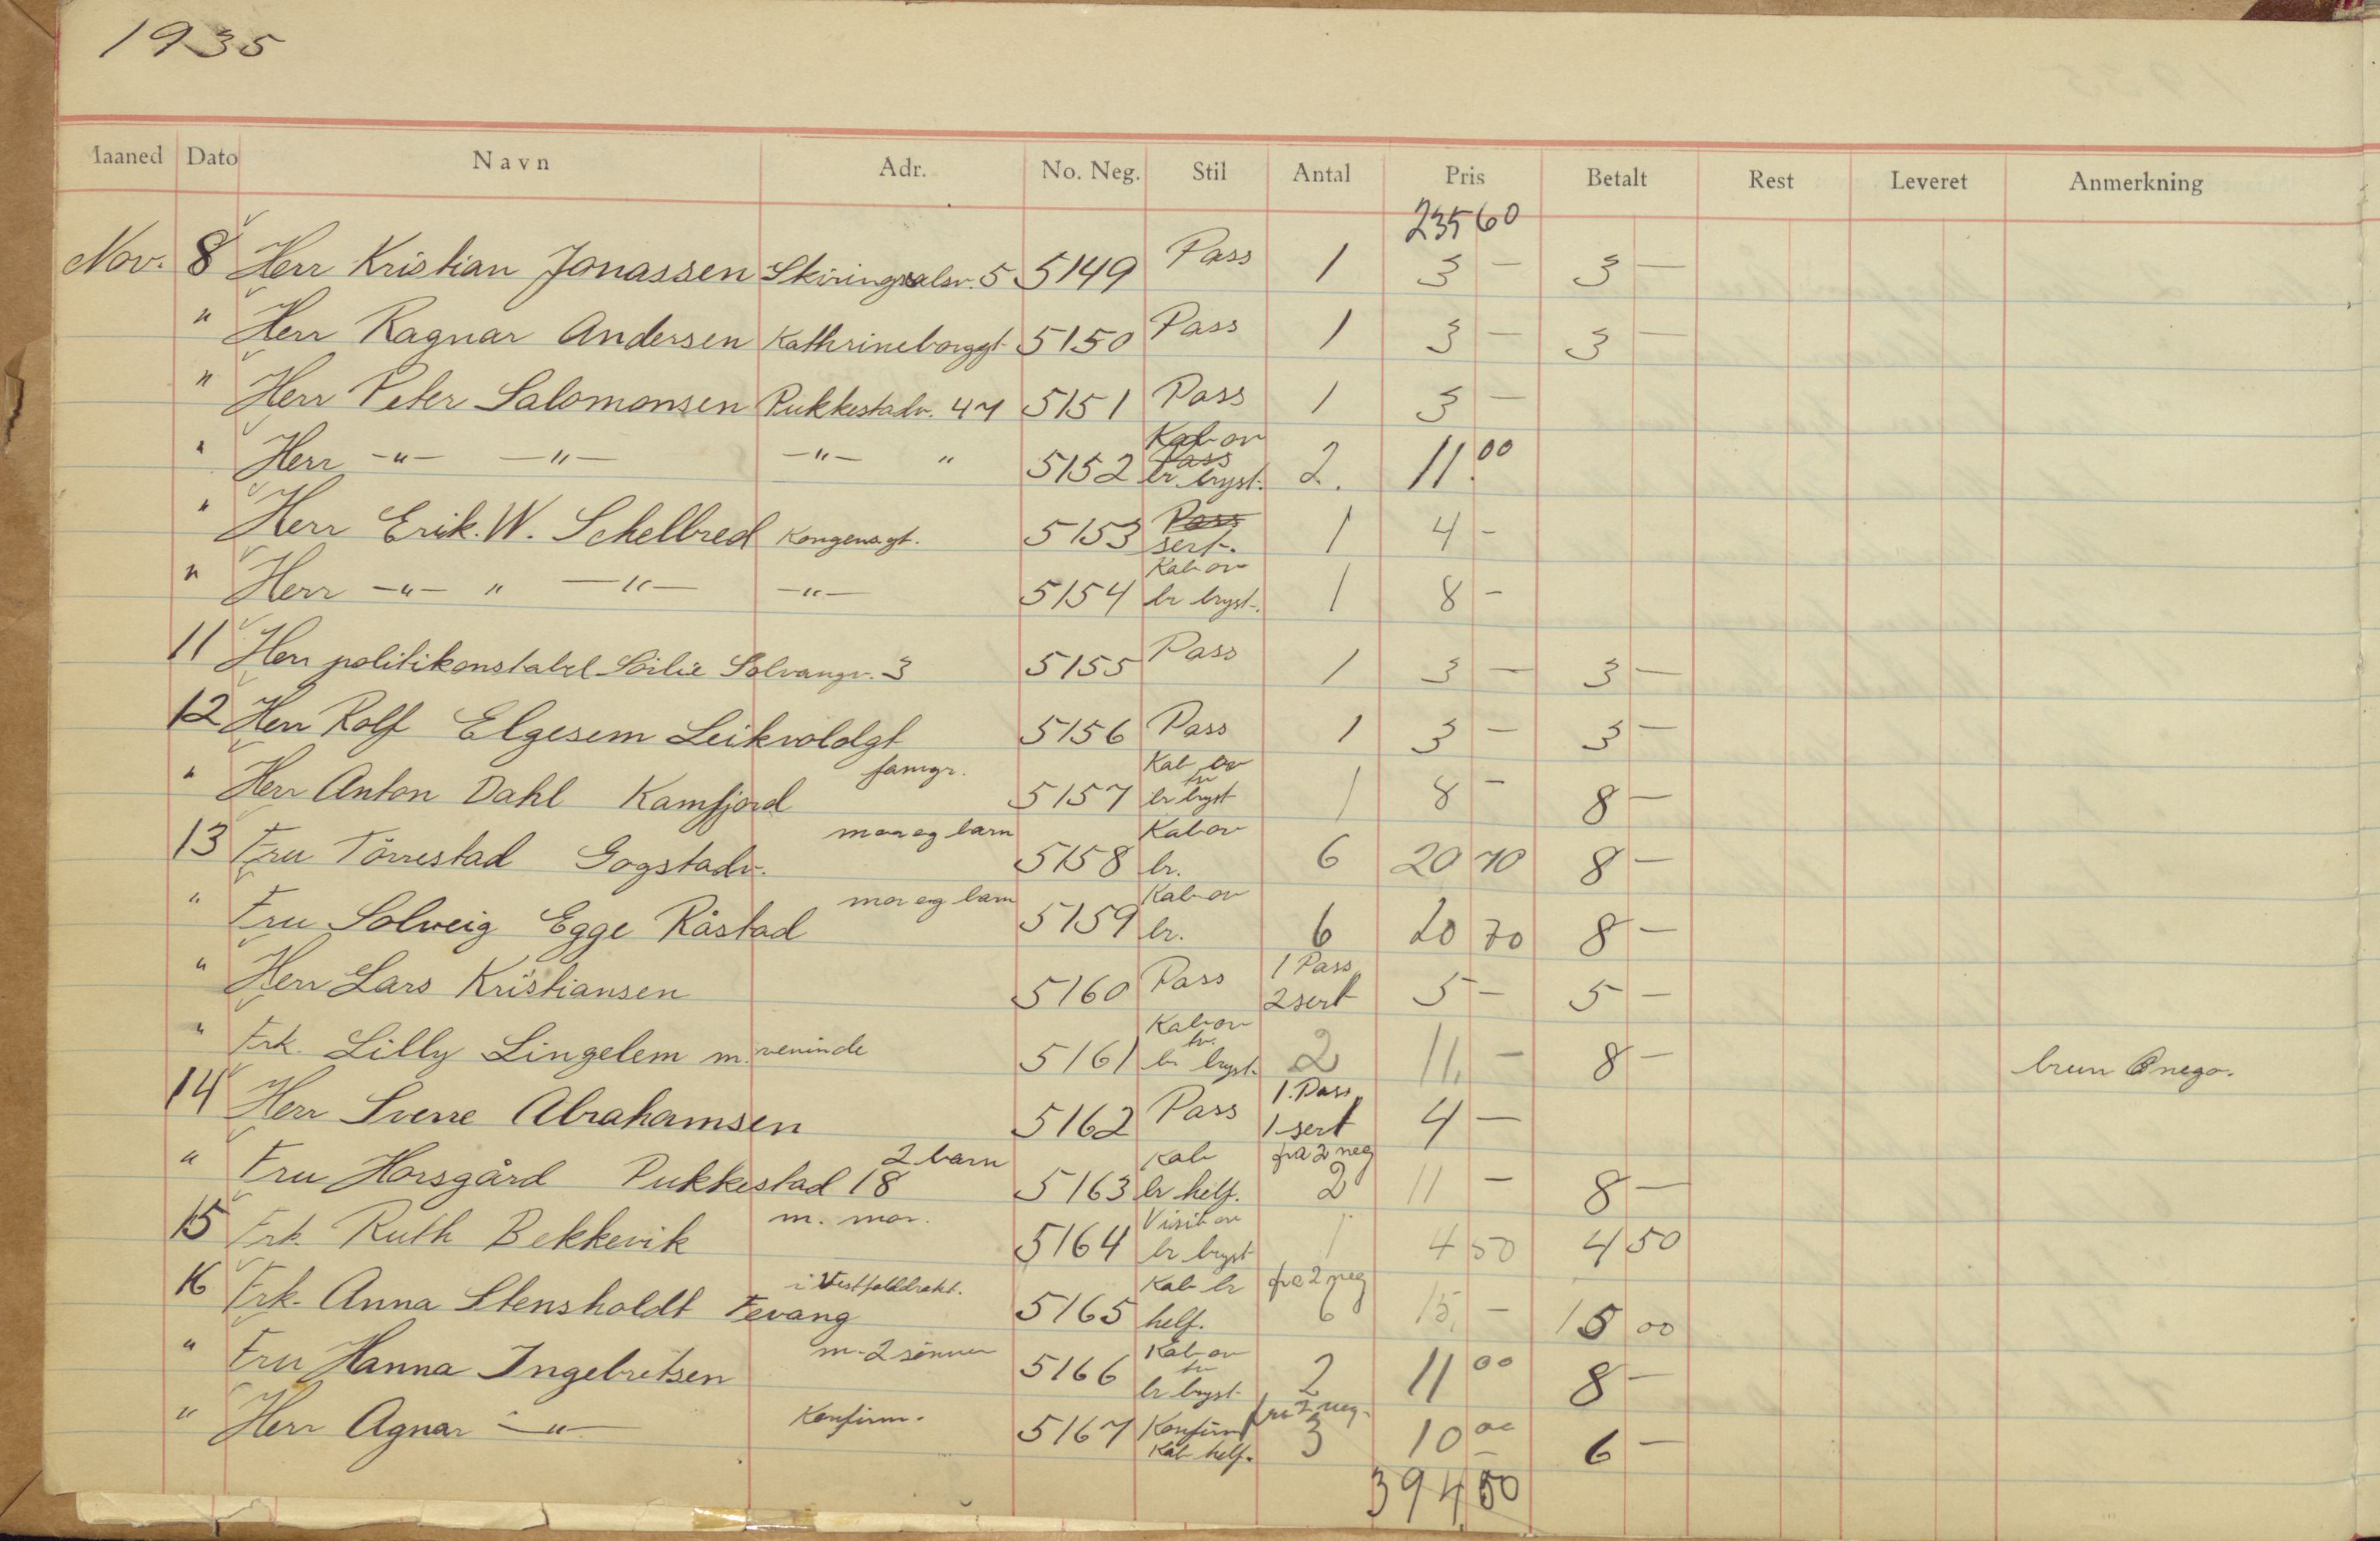 1935
Maaned Dato Navn Adr. No. Neg. Stil Antal Pris Betalt Rest Leveret Anmerkning
235 60
Nov. 8 Herr Kristian Jonassen Skiringssalsv. 5 5149 Pass 1 3 — 3 —
" Herr Ragnar Andersen Kathrineborggt 5150 Pass 1 3 — 3 —
" Herr Peter Salomonsen Pukkestadv. 47 5151 Pass 1 3 —
" Herr —"— —"— —"— " 5152 Kab ov Pass br bryst. 2. 11.00
" Herr Erik. W. Schelbred Kongensgt. 5153 Pass sert. 1 4 -
" Herr —"— " —"— —"— 5154 Kab ov br bryst. 1 8 -
11 Herr politikonstabel Sørlie Solvangv. 3 5155 Pass 1 3 — 3 —
12 Herr Rolf Elgesem Leikvoldgt 5156 Pass 1 3 — 3 —
" Herr Anton Dahl Kamfjord famgr. 5157 Kab ov tv br bryst 1 8 - 8 —
13 Fru Tørrestad Gogstadv. mor og barn 5158 Kab ov br. 6 20 70 8 —
" Fru Solveig Egge Råstad mor og barn 5159 Kab ov br. 6 20 70 8 —
" Herr Lars Kristiansen 5160 Pass 1 Pass 2 sert 5 — 5 —
" Frk. Lilly Lingelem m. veninde 5161 Kab ov tv. br bryst. 2 11, — 8 — brun nega.
14 Herr Sverre Abrahamsen 5162 Pass 1. Pass 1 sert 4 —
" Fru Horsgård Pukkestad 18 2 barn 5163 Kab br helf. fra 2 neg 2 11 — 8 —
15 Frk. Ruth Bekkevik m. mor. 5164 Visit ov br bryst 1 4 50 4 50
16 Frk. Anna Stensholdt Fevang i Vestfolddrakt. 5165 Kab br helf. fra 2 neg 6 15, — 15 00
" Fru Hanna Ingebretsen m. 2 sønner 5166 Kab ov tv br bryst 2 11 00 8 —
" Herr Agnar —"— Konfirm. 5167 Konfirm Kab helf. fra 2 neg. 3 10 00 6 —
394,50